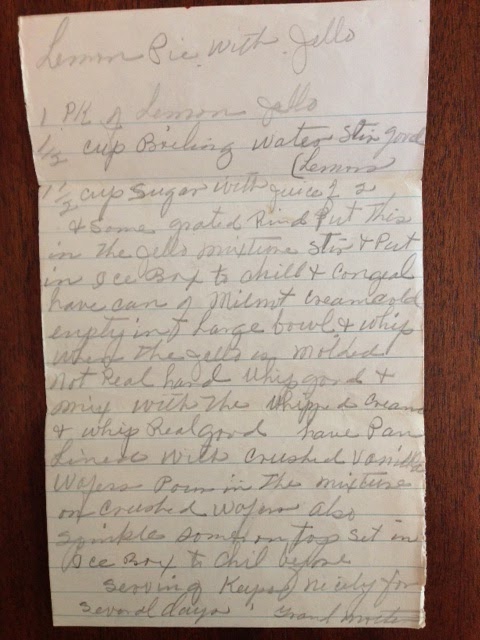 Lemon Pie With Jello
1 PK of Lemon Jello
1/2 cup Boiling Water Stir good
(Lemons
1 1/2 cup Sugar with juice of 2
& Some grated Rind Put this
in the Jello mixture Stir & Put
in Ice Box to chill & Congeal
have can of Milnot Cream cold
empty in large bowl & whip
when the Jello is molded
not Real hard whip good &
mix with the Whipp d Cream
& whip Real good have Pan
Lined with crushed Vanilla
Wafers Pour in the mixture
on Crushed Wafers also
sprinkle some on top set in
Ice Box to chil before
serving Keeps nicely for
several days